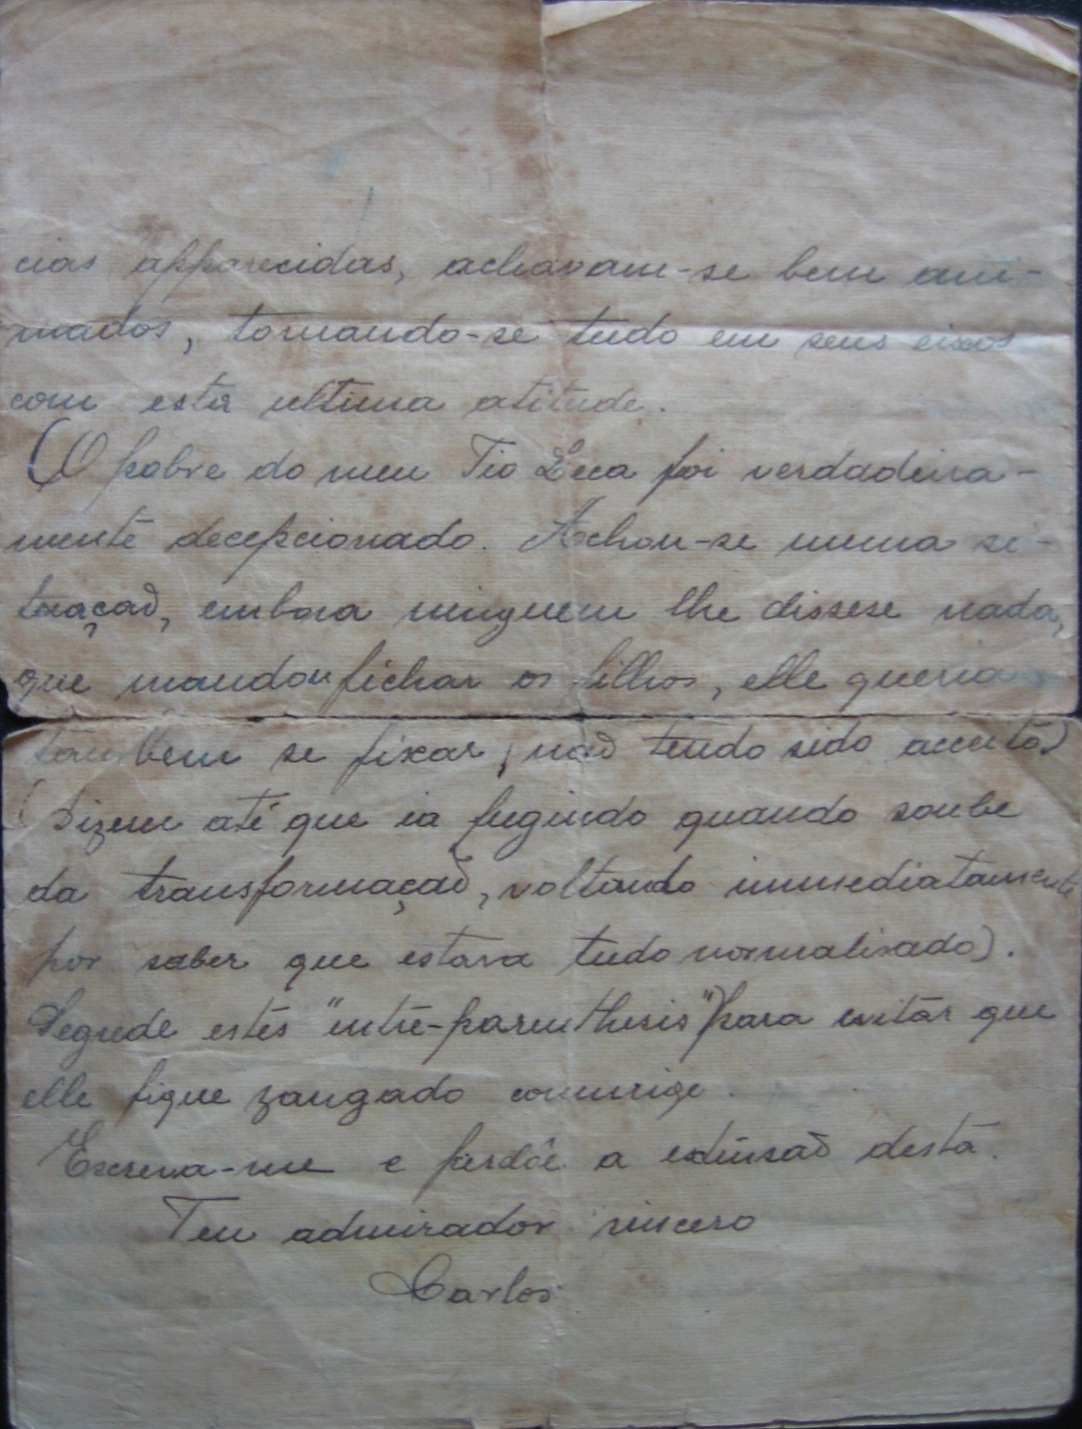 cias apparecidas, achavam-se bem ani-
mados, tornando-se tudo em seus eixos
com esta ultima atitude.
(O pobre do meu Tio Leca foi verdadeira-
mente decepcionado. Achou-se numa si-
tuação, embora ninguem lhe dissese nada,
que mandou fichar os filhos, elle queria
tambem se fixar, não tendo sido acceito)
(Dizem até que ia fugindo quando soube
da transformação, voltando immediatamente
por saber que estava tudo normalisado).
Segrede estes "entre-parenthesis" para evitar que
elle fique zangado commigo.
Escreva-me e perdôe a extensão desta.
Teu admirador sincero
Carlos